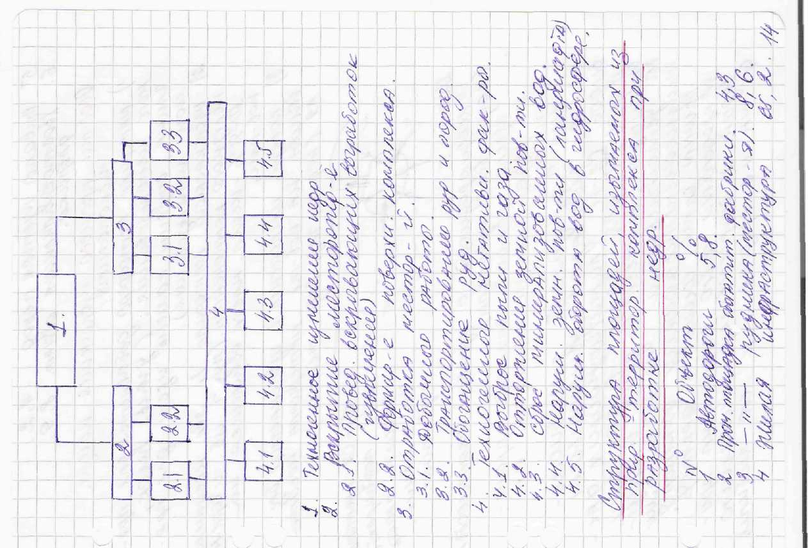 1.
2
3
2.1
2.2
3.1
3.2
3.3
4
4.1
4.2
4.3
4.4
4.5
1. Техногенное изменение недр
2. Вскрытие
2.1. Провед. вскрывающих выработок
2.2. Формир-е поверхн. комплекса.
3. Отработка местор-й.
3.1. Добычные работы.
3.2. Транспортирование руд и пород.
3.3. Обогащение руд.
4. Техногенное негативн. фак-ра.
4.1. Выброс пыли и газа
4.2. Отторжение земной пов-ти.
4.3. Сброс минерализованных вод.
4.4. Наруш. земн. пов-ти (ландшафта)
4.5. Наруш. оборота вод в гидросфере.
Структура площадей, изымаемых из
прир-территор комплекса при
разработке недр.
№ Объект %
1 Автодороги 5,8.
2 Пром. площадки обогатит. фабрики. 4,3
3 —"— рудника (местор-я). 8,6.
4 Жилая инфраструктура 2.
14